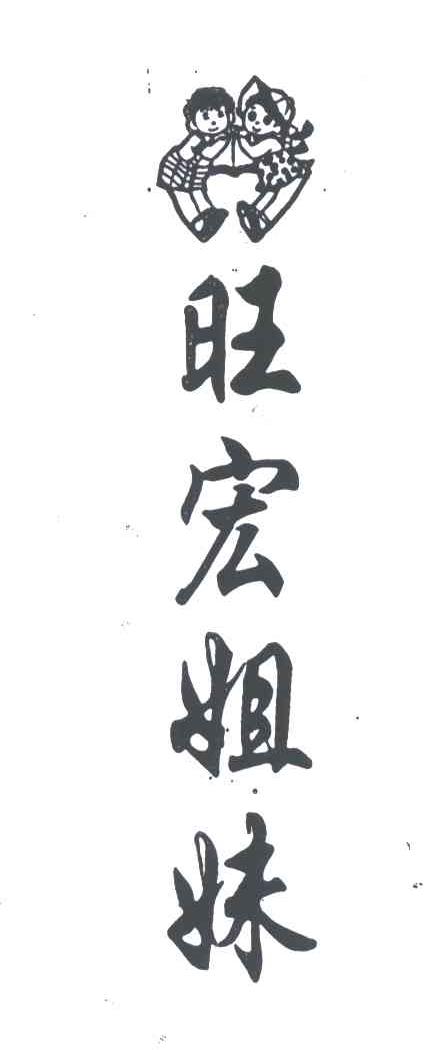 旺宏姐妹